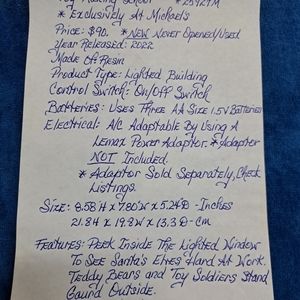 Toy Making School *25921M
* Exclusively At Michaels
Price: $90. *NEW Never Opened/Used
Year Released: 2022
Made Of: Resin
Product Type: Lighted Building
Control Switch: On/Off Switch
Batteries: Uses Three AA Size 1.5V Batteries
Electrical: A/C Adaptable By Using A
Lemax Power Adaptor. *Adaptor
NOT Included.
* Adaptor Sold Separately, Check
Listings.
Size: 8.58 H x 7.80 W x 5.24 D - Inches
21.84 x 19.8 W x 13.3 D - cm
Features: Peek Inside The Lighted Window
To See Santa's Elves Hard At Work.
Teddy Bears and Toy Soldiers Stand
Gaurd Outside.